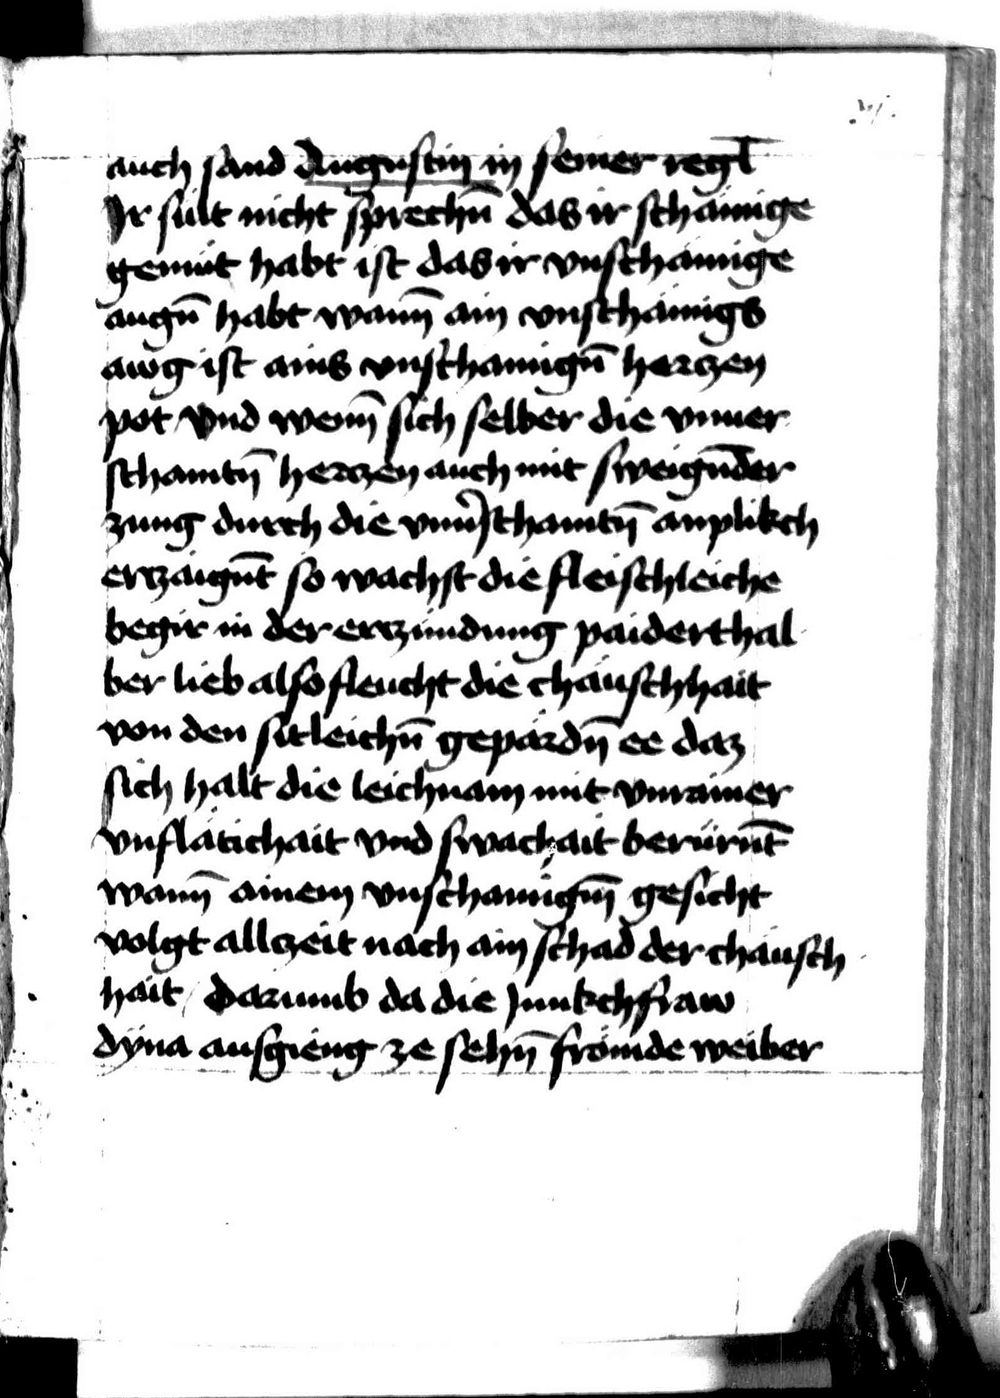 vj.
auch sand Augustin in seiner regl̄
Ir sült nicht sprechn̄ das ir schämige
gemüt habt ist das ir vnschämige
augn̄ habt wann̄ ain vnschämigs
awg ist ains vnschamign̄ herczen
pot Vnd wenn̄ sich selber die vnuer
schamtn̄ herczen auch mit sweign̄der
zung durch die vnũschamtn̄ anplikch
erczaign̄t so wachst die fleischleiche
begir in der erczündung paiderthal
ber lieb also fleucht die chäuschhait
von den sitleichn̄ gepärdn̄ ee daz
sich halt die leichnam mit vnrainer
vnflätichait vnd swachait berürn̄t
wann̄ ainem vnschamigm̄ gesicht
volgt allczeit nach ain schad der chäusch
hait / Darumb da die Junkchfraw
dÿna ausgieng ze sehn̄ frömde weiber